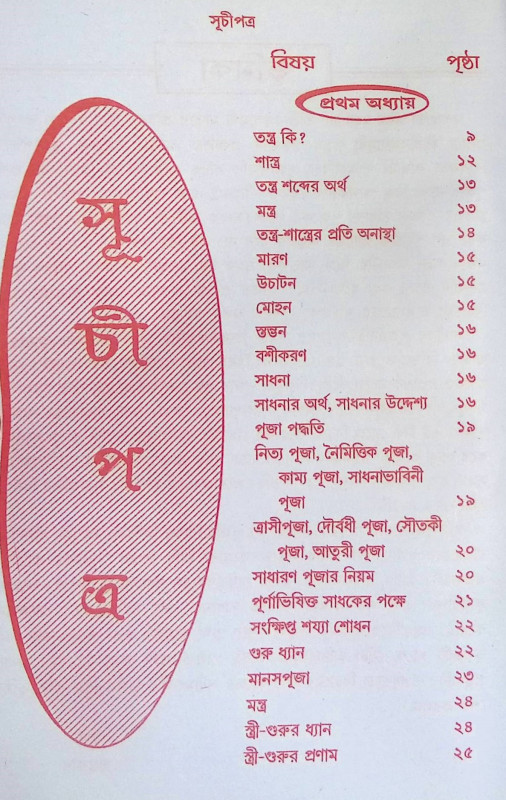 সূচীপত্র
বিষয় পৃষ্ঠা
প্রথম অধ্যায়
তন্ত্র কি? ৯
শাস্ত্র ১২
তন্ত্র শব্দের অর্থ ১৩
মন্ত্র ১৩
তন্ত্র-শাস্ত্রের প্রতি অনাস্থা ১৪
মারণ ১৫
উচাটন ১৫
মোহন ১৫
স্তম্ভন ১৬
বশীকরণ ১৬
সাধনা ১৬
সাধনার অর্থ, সাধনার উদ্দেশ্য ১৬
পূজা পদ্ধতি ১৯
নিত্য পূজা, নৈমিত্তিক পূজা,
কাম্য পূজা, সাধনাভাবিনী
পূজা ১৯
ত্রাসীপূজা, দৌর্বধী পূজা, সৌতকী
পূজা, আতুরী পূজা ২০
সাধারণ পূজার নিয়ম ২০
পূর্ণাভিষিক্ত সাধকের পক্ষে ২১
সংক্ষিপ্ত শয্যা শোধন ২২
গুরু ধ্যান ২২
মানসপূজা ২৩
মন্ত্র ২৪
স্ত্রী-গুরুর ধ্যান ২৪
স্ত্রী-গুরুর প্রণাম ২৫
সূ
চী
প
ত্র